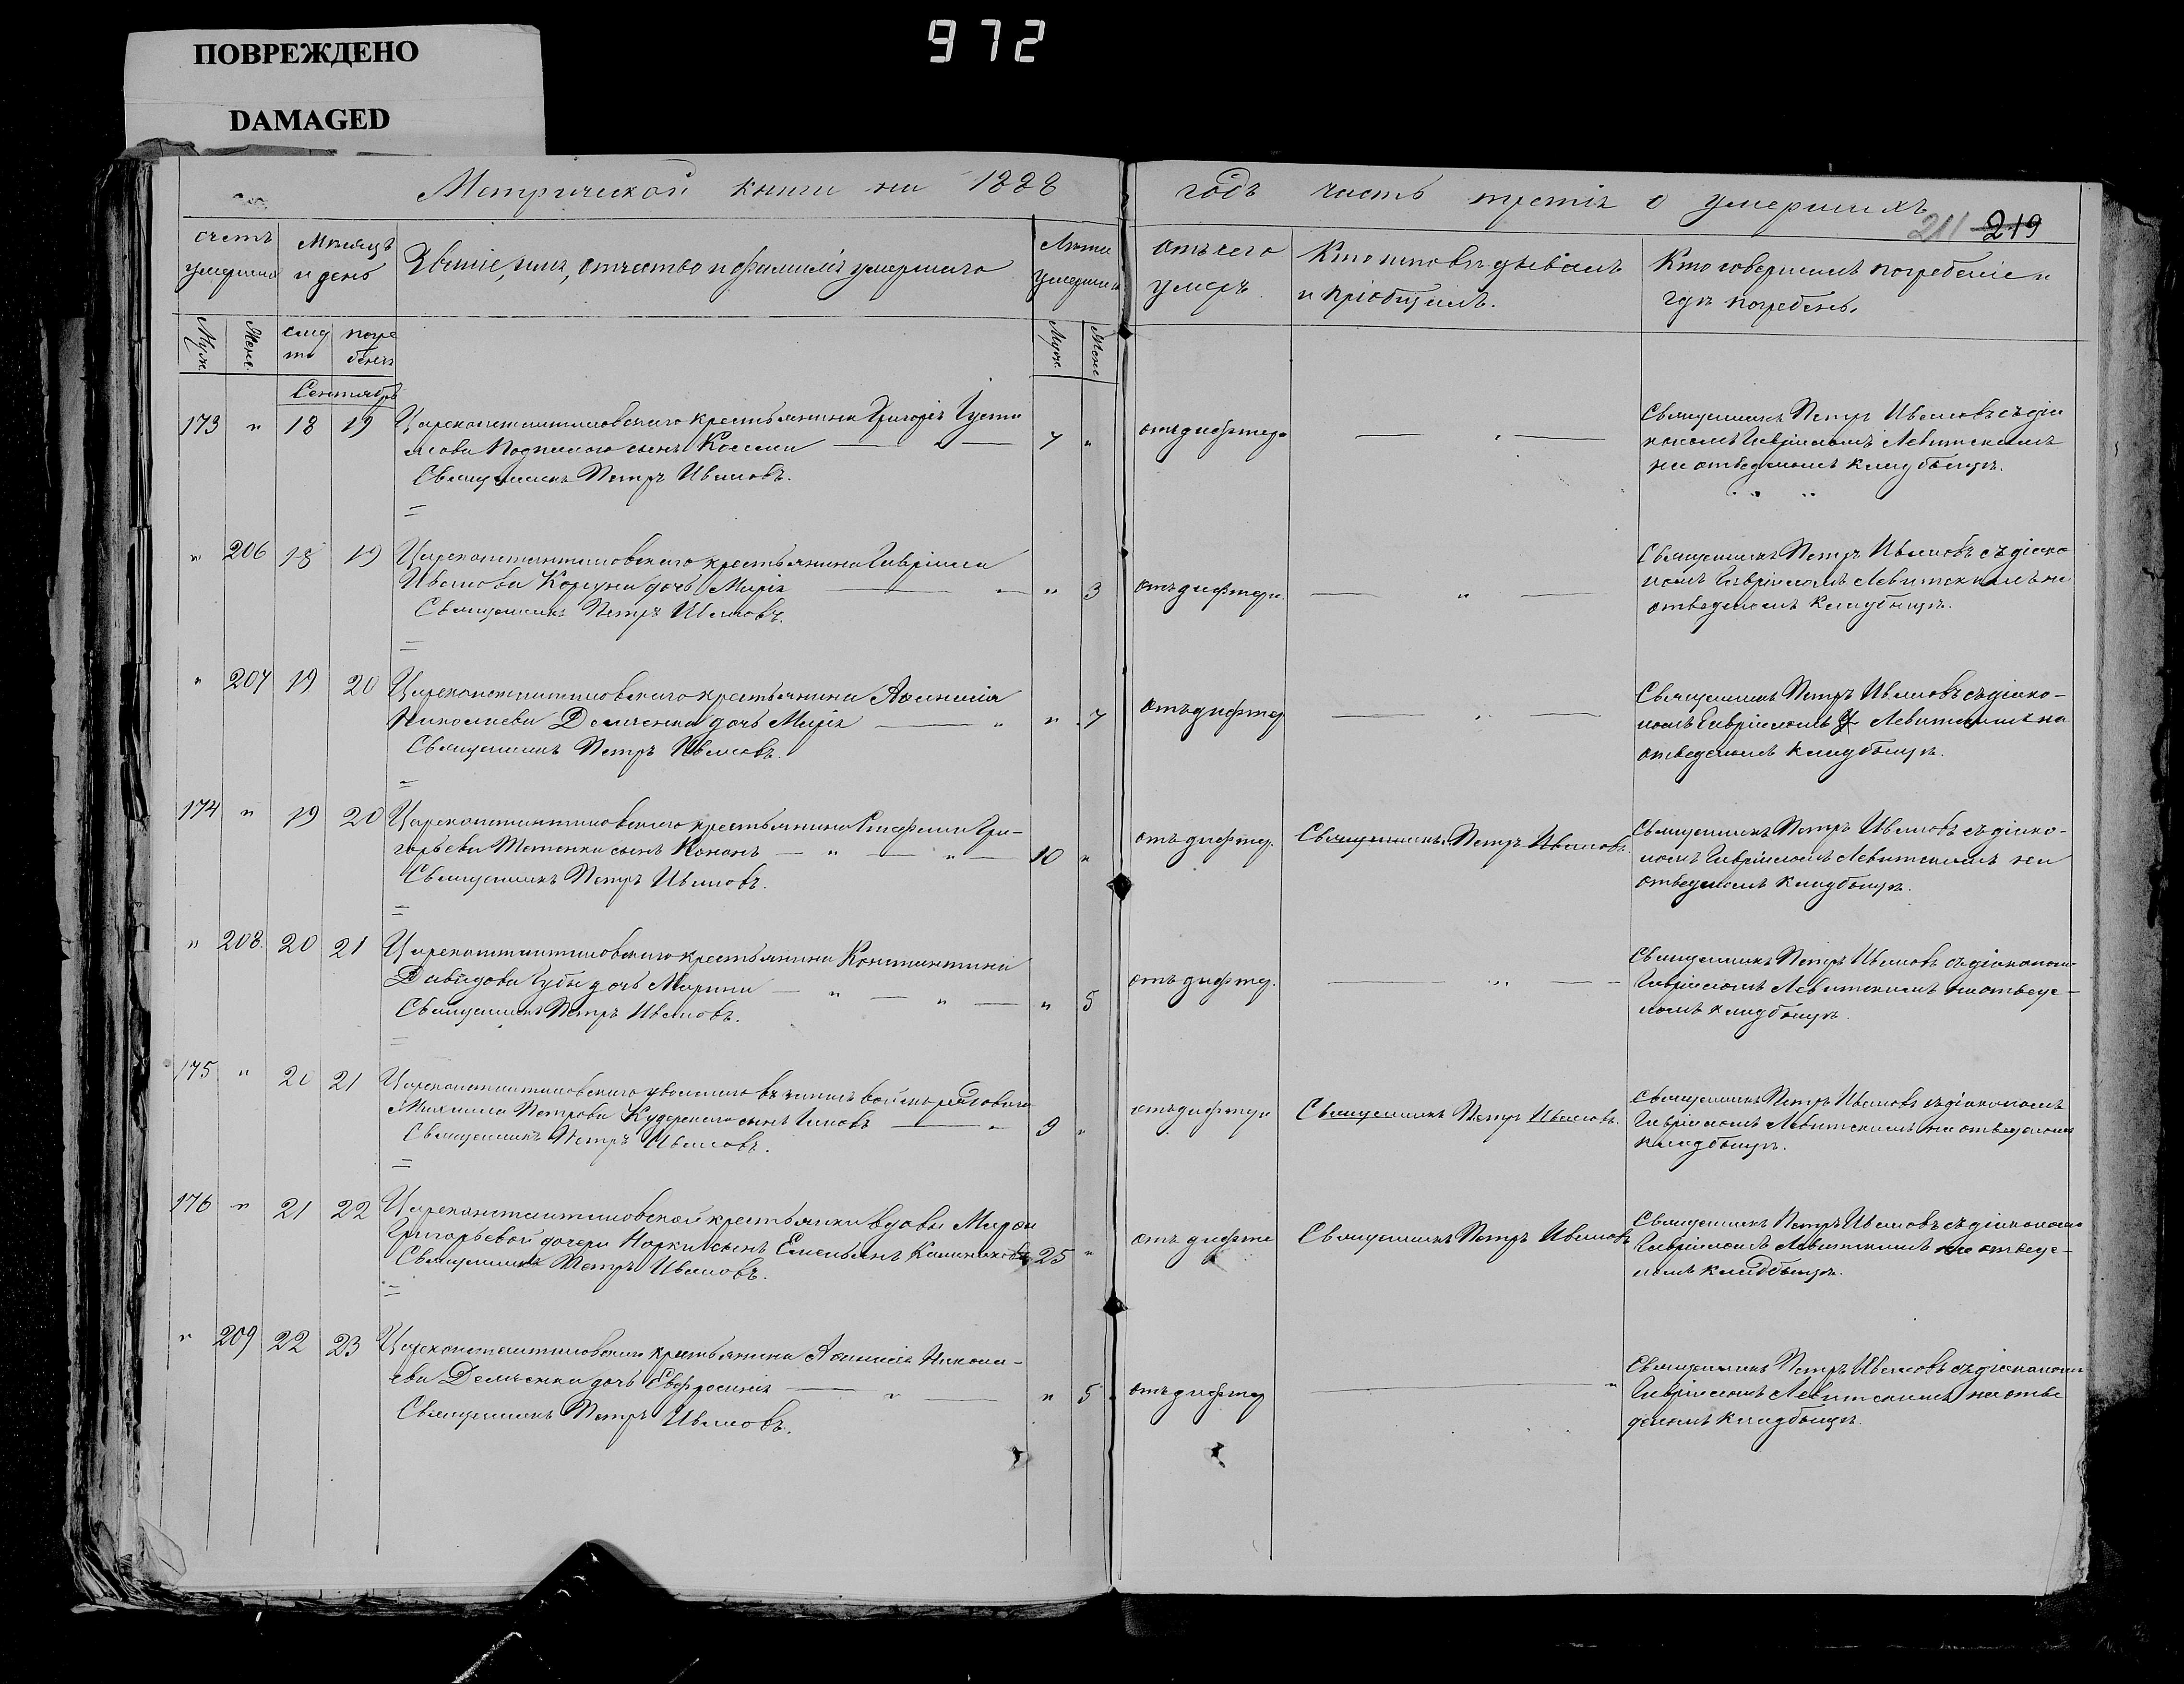 ПОВРЕЖДЕНО
DAMAGED
972
Метрической книги на 1888 годъ часть третія о умершихъ
211 219
счетъ умерших
Мѣсяцъ и день
Званіе, имя, отчество и фамилія умершаго
Лѣта умерших
отъ чего умеръ
Кто исповѣдывалъ и пріобщилъ.
Кто совершалъ погребеніе и гдѣ погребены.
Муж. Жен. смерти погребенія Муж. Жен
Сентябрь
173 " 18 19 Цареконстантиновскаго крестьянина Григорія
сынъ 7 " отъ дифтер.
Священникъ Петръ Ивановъ.
Священникъ Петръ Ивановъ съ діа
кономъ Гавріиломъ Левитскимъ
на отведеномъ кладбищѣ.
" 206 18 19 Цареконстантиновскаго крестьянина Гавріила
Иванова Коргуна дочь Марія " 3 отъ дифтери.
Священникъ Петръ Ивановъ.
Священникъ Петръ Ивановъ съ діако
номъ Гавріиломъ Левитскимъ на
отведеномъ кладбищѣ.
" 207 19 20 Цареконстантиновскаго крестьянина Афанасія
Николаева Демченка дочь Марія " 7 отъ дифтер
Священникъ Петръ Ивановъ.
Священникъ Петръ Ивановъ съ діако-
номъ Гавріиломъ Левитскимъ на
отведеномъ кладбищѣ.
174 " 19 20 Цареконстантиновскаго крестьянина Стефана Гри-
горьева сынъ Кононъ 10 " отъ дифтер. Священникъ Петръ Ивановъ.
Священникъ Петръ Ивановъ.
Священникъ Петръ Ивановъ съ діако-
номъ Гавріиломъ Левитскимъ на
отведеномъ кладбищѣ.
" 208 20 21 Цареконстантиновскаго крестьянина Константина
Давидова Губы дочь Марина " 5 отъ дифтер.
Священникъ Петръ Ивановъ.
Священникъ Петръ Ивановъ съ діакономъ
Гавріиломъ Левитскимъ на отведе-
номъ кладбищѣ.
175 " 20 21 Цареконстантиновскаго рядоваго
Михаила Петрова сынъ Іаковъ 9 " отъ дифтери Священникъ Петръ Ивановъ.
Священникъ Петръ Ивановъ.
Священникъ Петръ Ивановъ съ діакономъ
Гавріиломъ Левитскимъ на отведеномъ
кладбищѣ.
176 " 21 22 Цареконстантиновской крестьянки вдовы Марѳы
Григорьевой дочери сынъ Емельянъ 25 " отъ дифте Священникъ Петръ Ивановъ
Священникъ Петръ Ивановъ.
Священникъ Петръ Ивановъ съ діакономъ
Гавріиломъ Левитскимъ на отведе-
номъ кладбищѣ.
" 209 22 23 Цареконстантиновскаго крестьянина Афанасія Никола-
ева Демченка дочь Евфросинія " 5 отъ дифтер
Священникъ Петръ Ивановъ.
Священникъ Петръ Ивановъ съ діакономъ
Гавріиломъ Левитскимъ на отве
деномъ кладбищѣ.